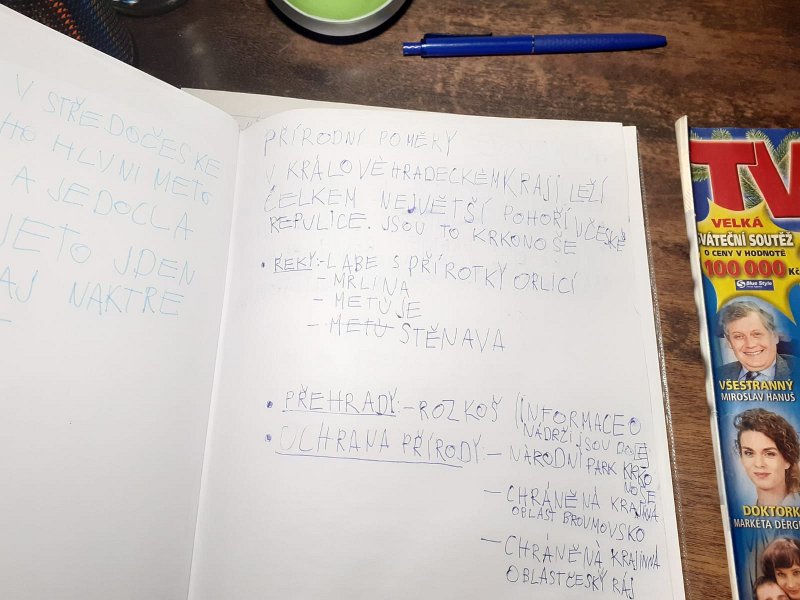 V STŘEDOČESKE
HO HLVNI METO
A JE DOCLA
JETO JDEN
AJ NAKTRE
PŘÍRODNÍ POMĚRY
V KRÁLOVÉHRADECKÉM KRAJI LEŽÍ
ČELKEM NEJVĚTŠÍ POHOŘÍ V ČESKÉ
REPULICE. JSOU TO KRKONOŠE
• ŘEKY:- LABE S PŘÍROTKY ORLICÍ
- MRLINA
- METUJE
- METU STĚNAVA
• PŘEHRADY: - ROZKOŠ (INFORMACE O
NÁDRŽI JSOU DOLE
• OCHRANA PŘÍRODY: - NÁRODNÍ PARK KRKO
NOŠE
- CHRÁNĚNÁ KRAJINA
OBLAST BROUMOVSKO
- CHRÁNĚNÁ KRAJINNÁ
OBLAST ČESKÝ RÁJ
TV
VELKÁ
VÁTEČNÍ SOUTĚŽ
O CENY V HODNOTĚ
100 000 Kč
Blue Style
VŠESTRANNÝ
MIROSLAV HANUŠ
DOKTORK
MARKÉTA DĚRGE